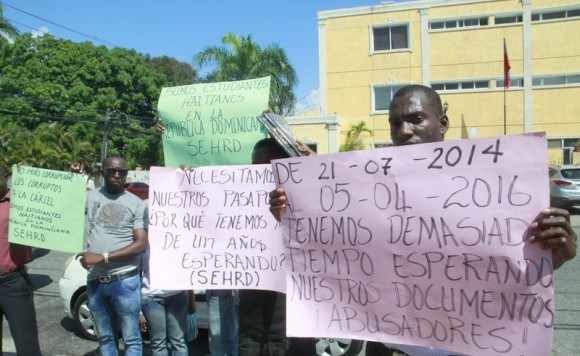 NO MAS CORRUPCION
LOS CORRUPTOS
A LA CARCEL
SOMOS ESTUDIANTES
HAITIANOS
EN LA
DOMINICANA
SEHRD
SOMOS ESTUDIANTES
HAITIANOS
EN LA
REPUBLICA DOMINICANA
SEHRD
NECESITAMOS
NUESTROS PASAPO
¿POR QUÉ TENEMOS
DE UN AÑOS
ESPERANDO?
(SEHRD)
DE 21-07-2014
05-04-2016
TENEMOS DEMASIAD
TIEMPO ESPERANDO
NUESTROS DOCUMENTOS
¡ABUSADORES!